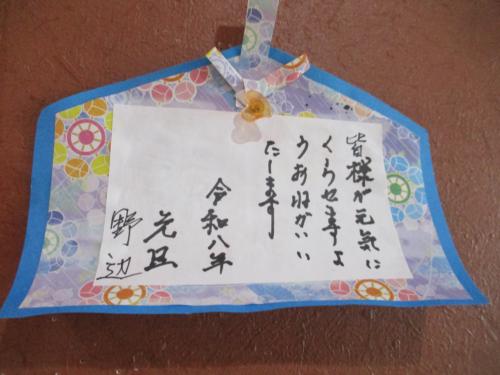 皆様が元気に
くらせますよ
うおねがいい
たします
令和八年
元旦
野辺